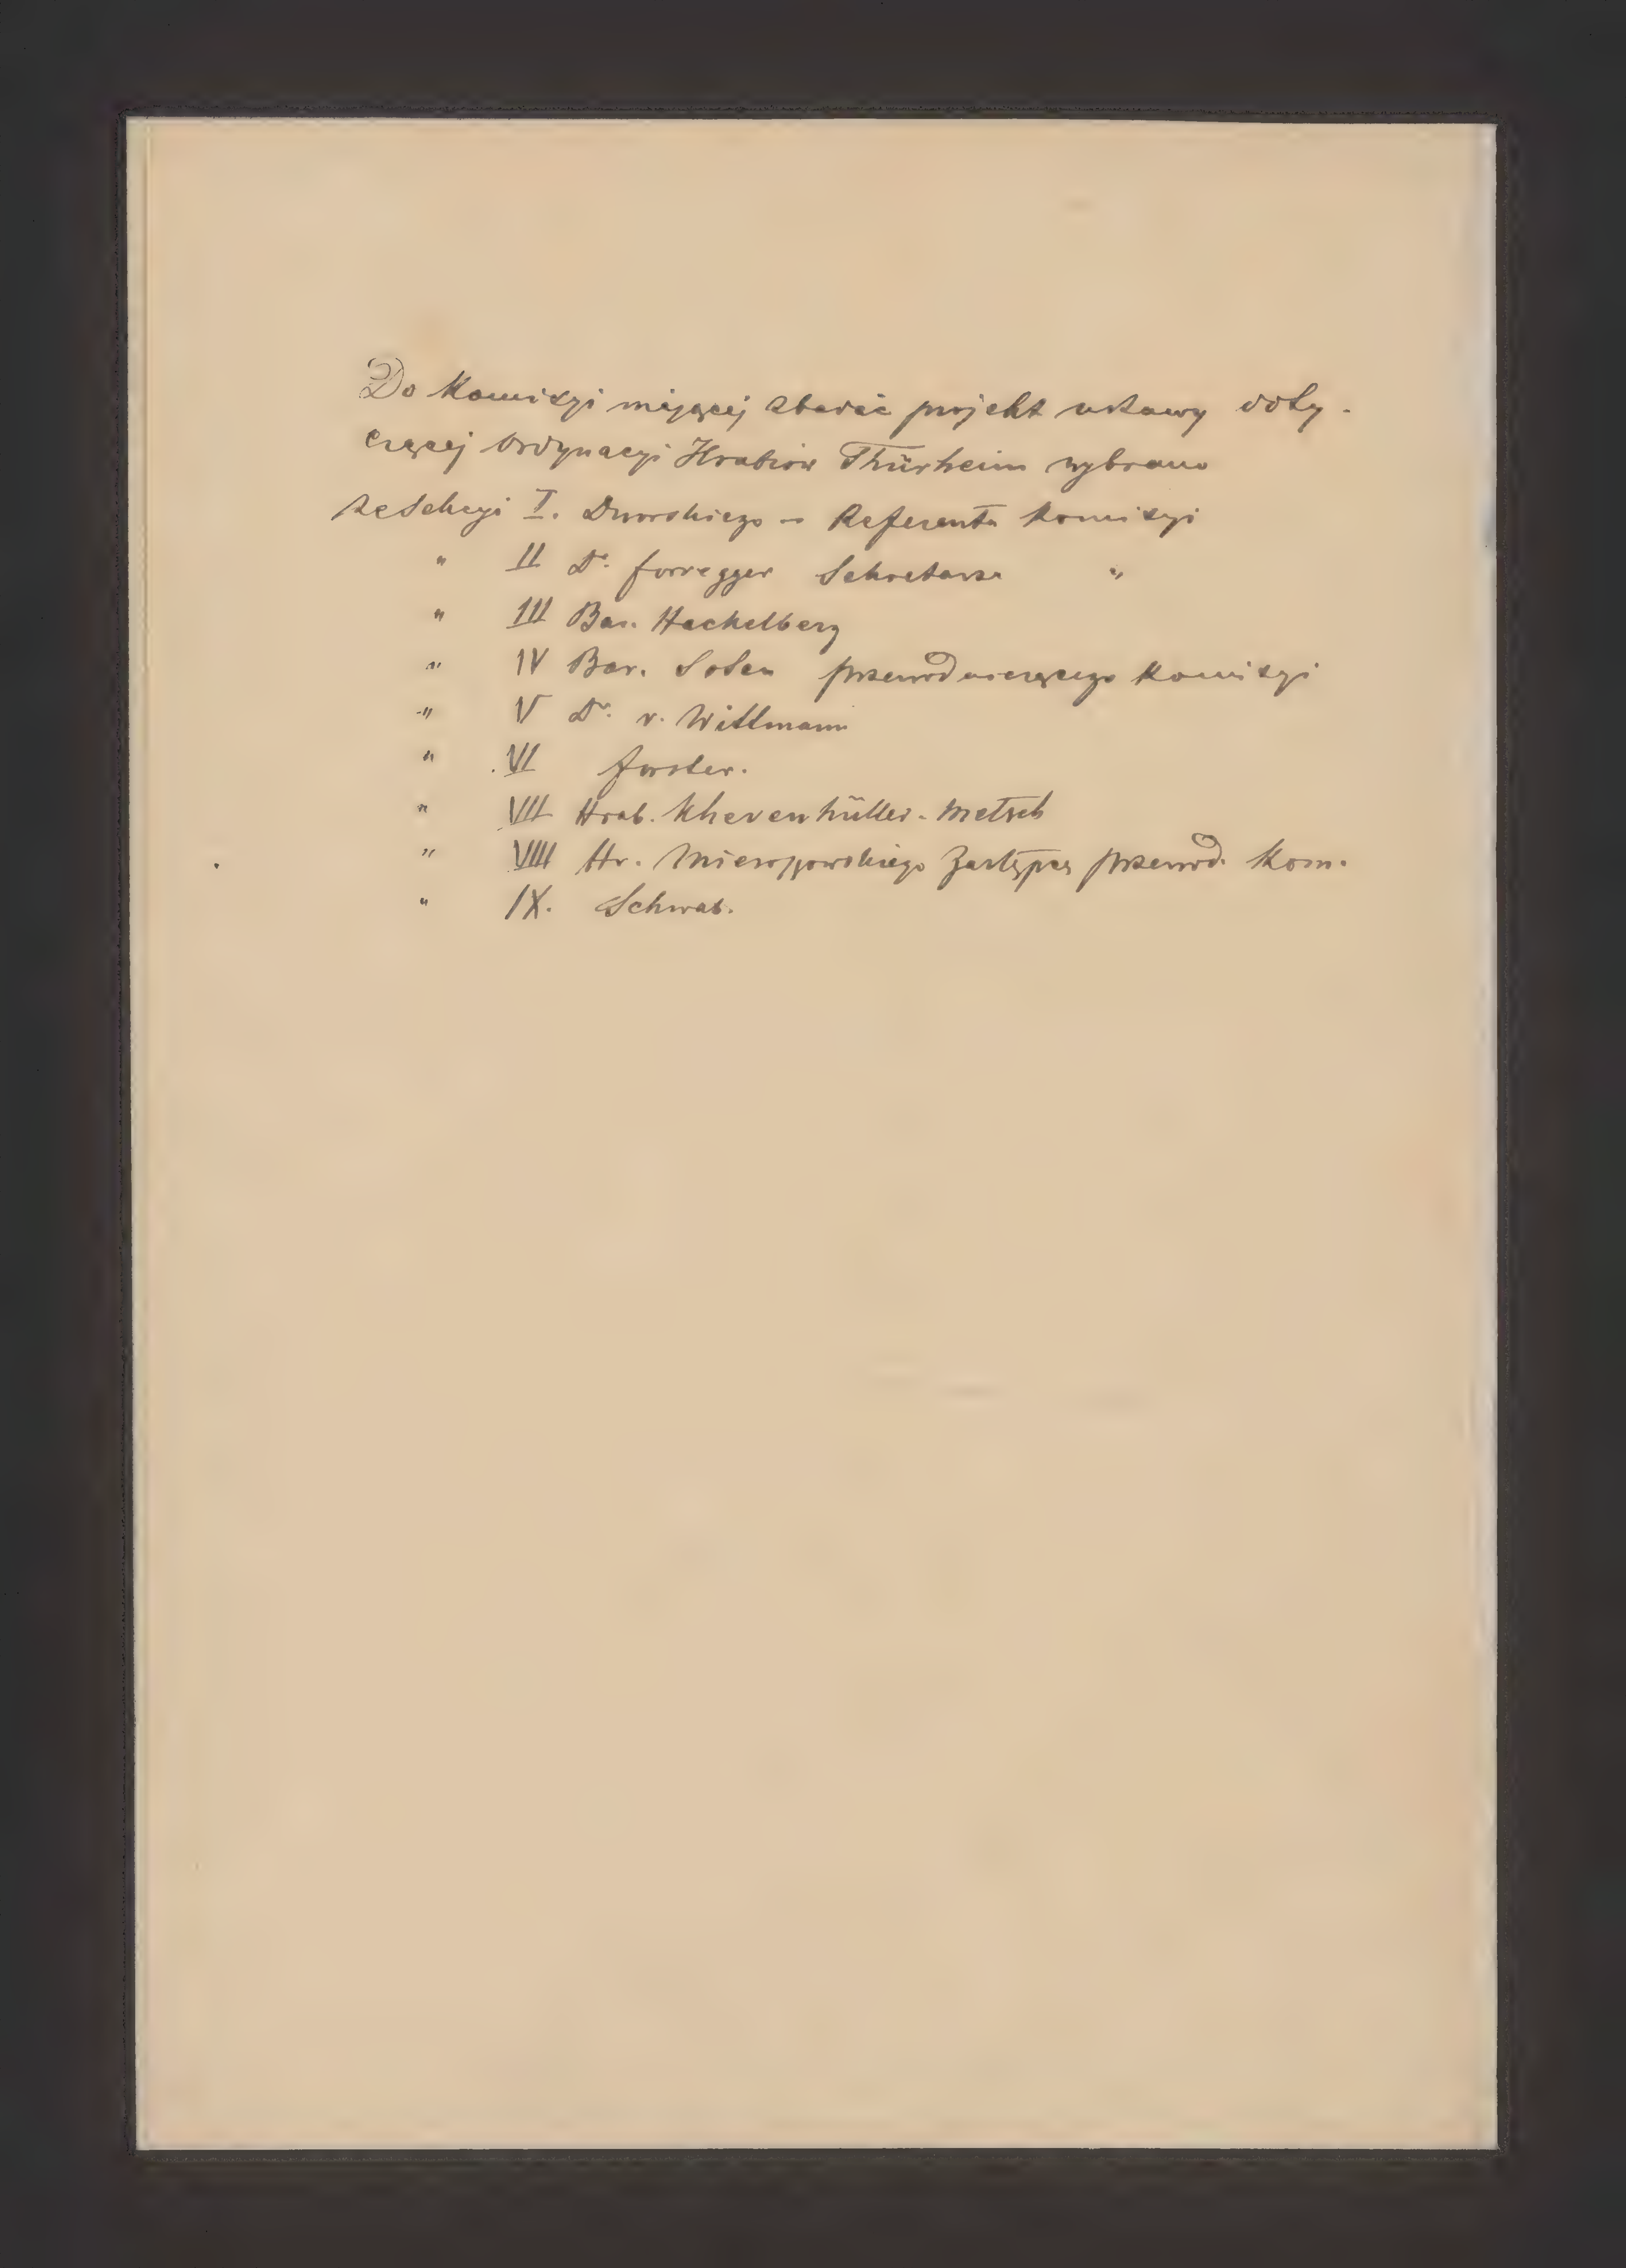 Do Komisyi mającej zbadać projekt ustawy doty-
czącej Ordynacyi Hrabiów Thürheim wybrano
ze Sekcyi I. Dworskiego – Referenta Komisyi
" II Dr. Forregger Sekretarza "
" III Bar. Hackelberg
" IV Bar. Solen przewodniczącego Komisyi
" V Dr. v. Wittmann
" VI Forster.
" VII Hrab. Khevenhüller-Metsch
" VIII Hr. Mieroszowskiego Zastępcę przewod. Kom.
" IX. Schwab.